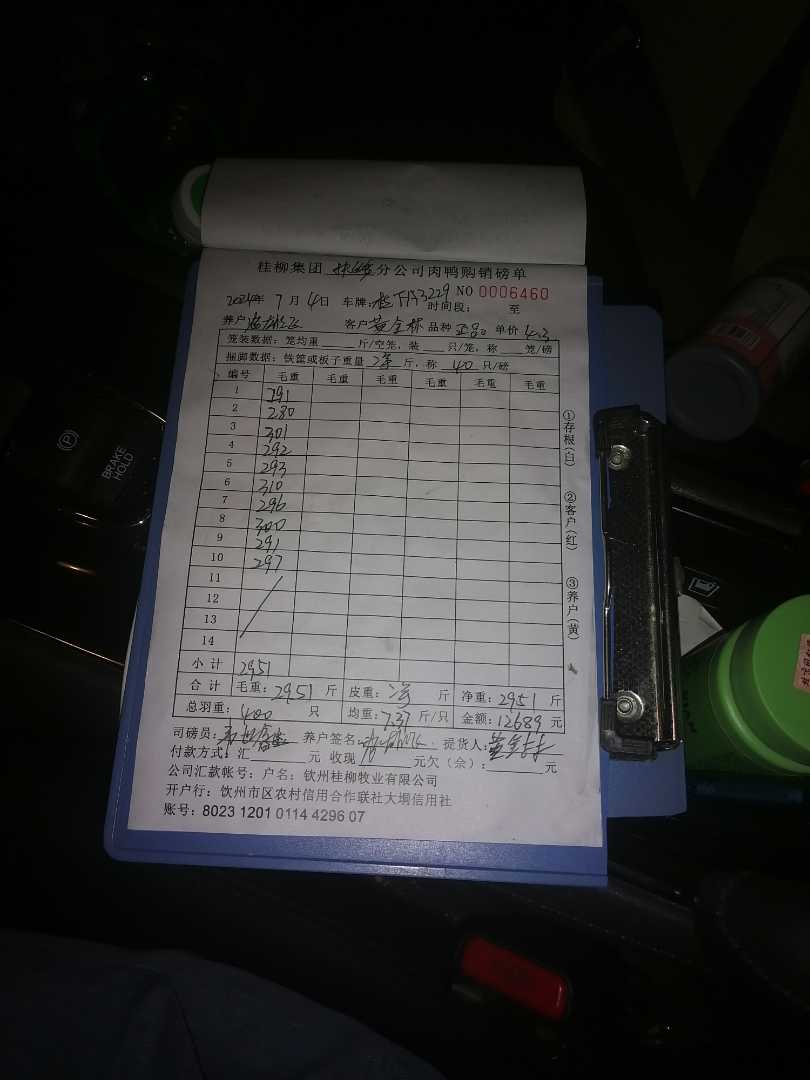 桂柳集团 分公司肉鸭购销磅单
2024年 7月4日 车牌: NO 0006460
时间段: 至
养户 客户 黄全林 品种 正品 单价 4.3
笼装数据:笼均重 斤/空笼,装 只/笼,称 笼/磅
捆脚数据:铁筐或板子重量 净 斤,称 40 只/磅
编号 毛重 毛重 毛重 毛重 毛重 毛重
1 291
2 280
3 301
4 292
5 293
6 310
7 296
8 300
9 291
10 297
11
12
13
14
小计 2951
合计 毛重:2951斤 皮重:净 斤 净重:2951斤
总羽重:400 只 均重:7.37斤/只 金额:12689元
司磅员: 养户签名: 提货人:
付款方式:汇 元 收现 元欠(余): 元
公司汇款帐号:户名:钦州桂柳牧业有限公司
开户行:钦州市区农村信用合作联社大垌信用社
账号:8023 1201 0114 4296 07
①存根(白) ②客户(红) ③养户(黄)
BRAKE
HOLD